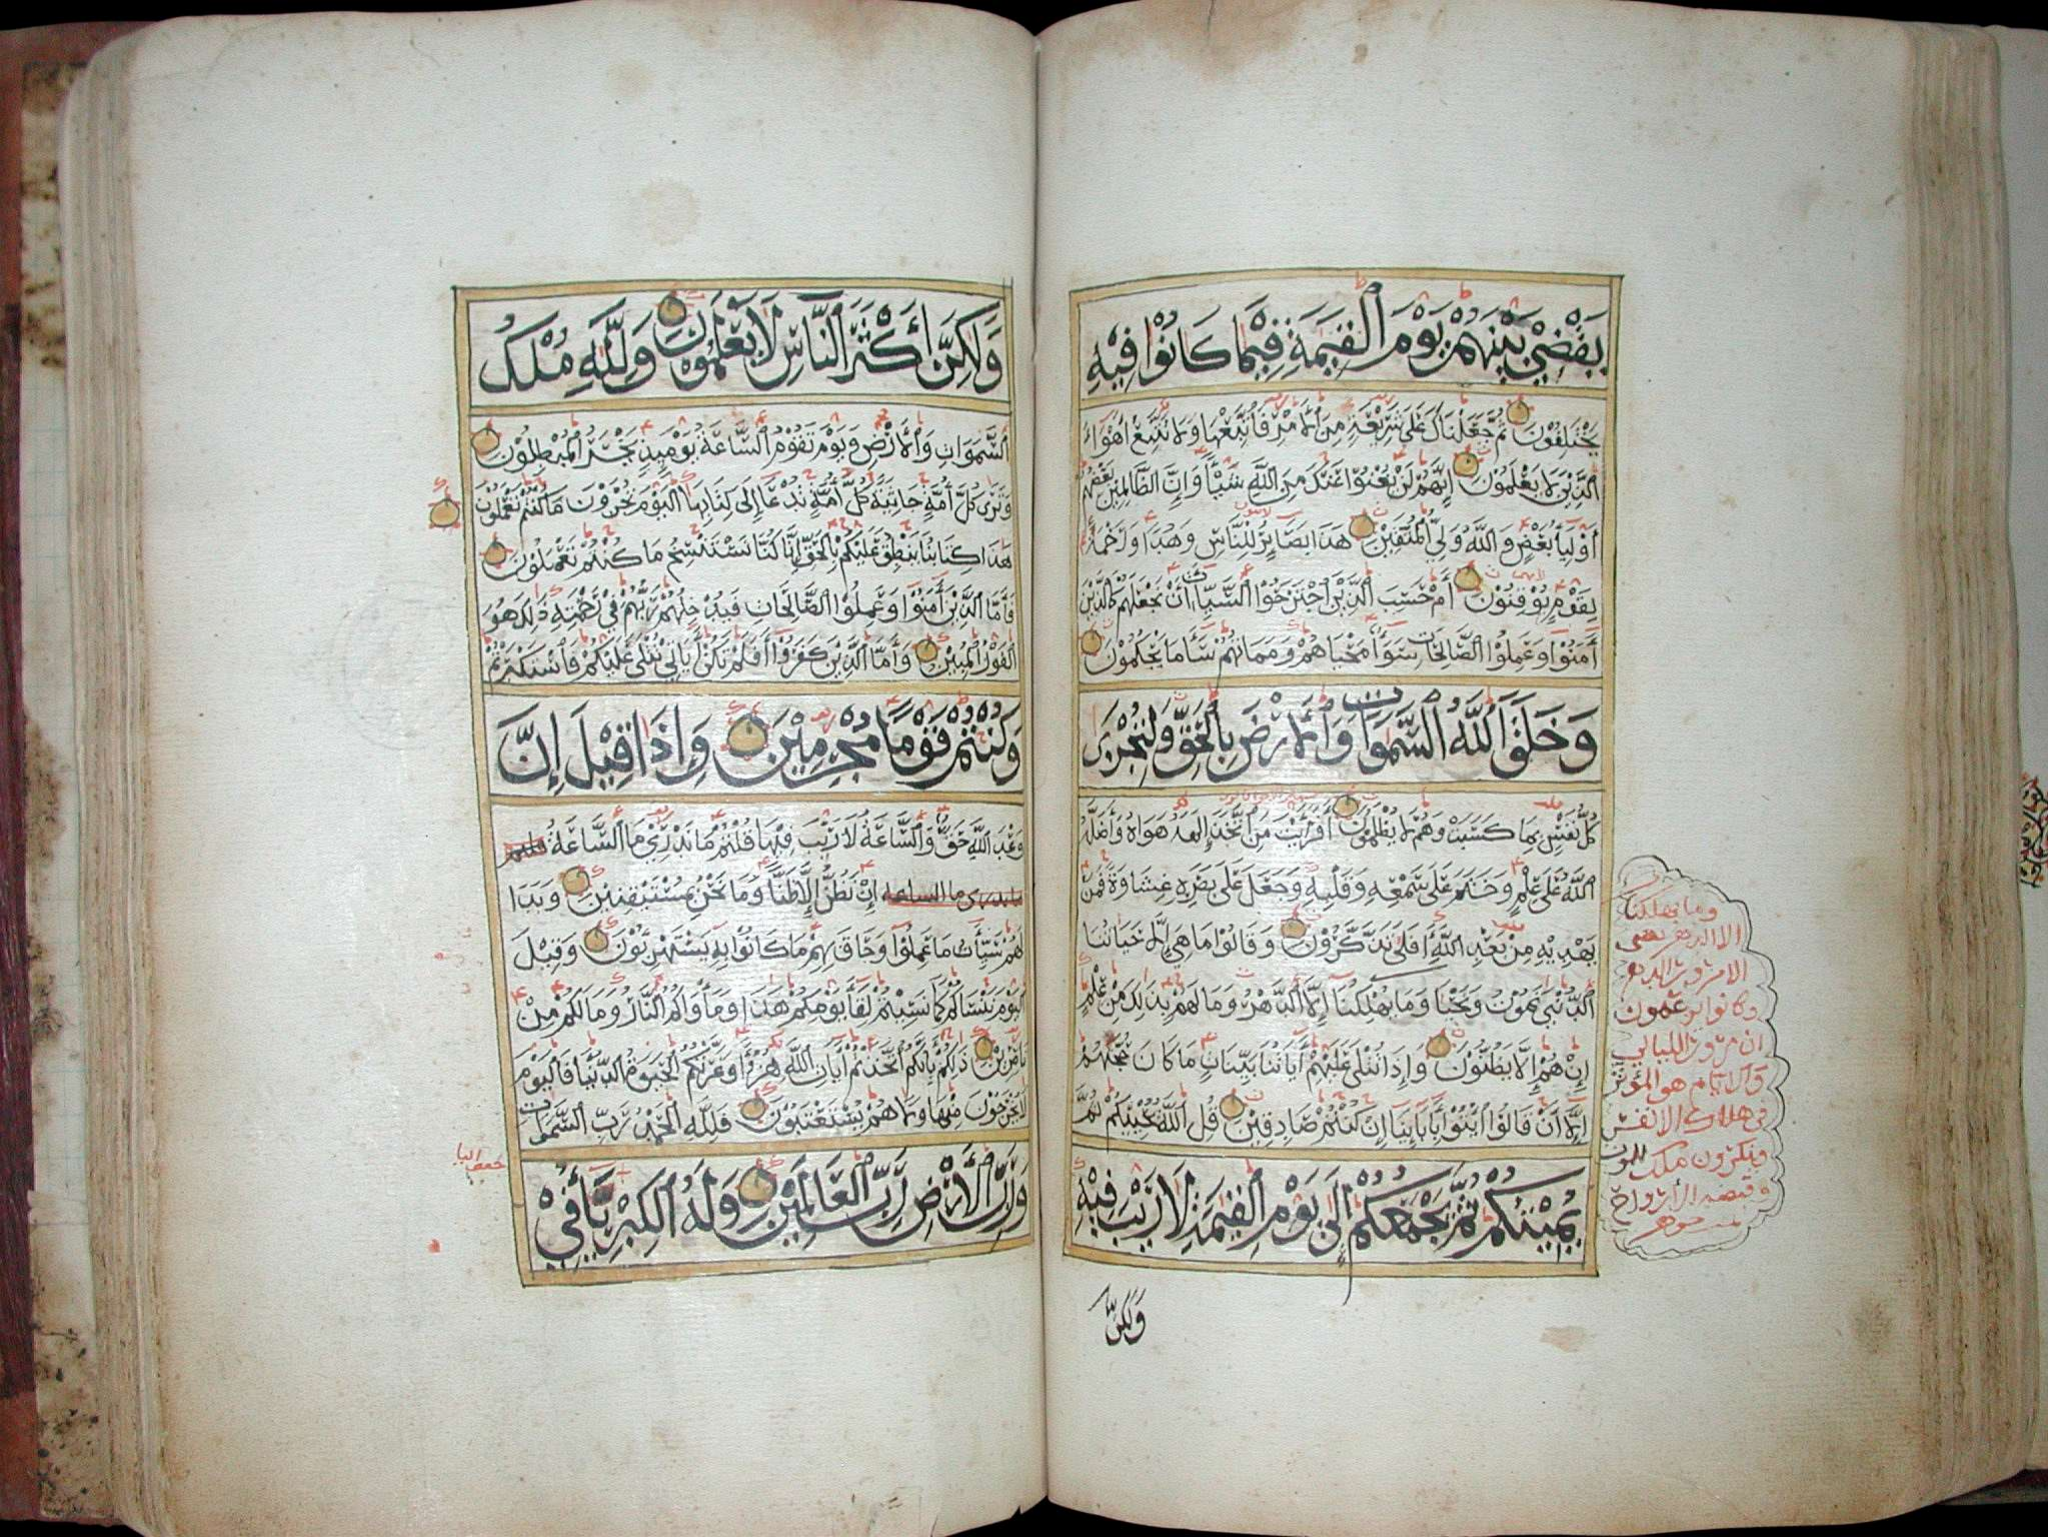 يَقْضِيْ بَيْنَهُمْ يَوْمَ الْقِيٰمَةِ فِيْمَا كَانُوْا فِيْهِ
يَخْتَلِفُوْنَ ثُمَّ جَعَلْنَاكَ عَلٰى شَرِيْعَةٍ مِنَ الْأَمْرِ فَاتَّبِعْهَا وَلَا تَتَّبِعْ أَهْوَاءَ
الَّذِيْنَ لَا يَعْلَمُوْنَ إِنَّهُمْ لَنْ يُغْنُوْا عَنْكَ مِنَ اللَّهِ شَيْئًا وَإِنَّ الظَّالِمِيْنَ بَعْضُهُمْ
أَوْلِيَاءُ بَعْضٍ وَاللَّهُ وَلِيُّ الْمُتَّقِيْنَ هٰذَا بَصَائِرُ لِلنَّاسِ وَهُدًى وَرَحْمَةٌ
لِقَوْمٍ يُوْقِنُوْنَ أَمْ حَسِبَ الَّذِيْنَ اجْتَرَحُوْا السَّيِّئَاتِ أَنْ نَجْعَلَهُمْ كَالَّذِيْنَ
أٰمَنُوْا وَعَمِلُوْا الصَّالِحَاتِ سَوَاءً مَحْيَاهُمْ وَمَمَاتُهُمْ سَاءَ مَا يَحْكُمُوْنَ
وَخَلَقَ اللَّهُ السَّمٰوَاتِ وَالْأَرْضَ بِالْحَقِّ وَلِتُجْزٰى
كُلُّ نَفْسٍ بِمَا كَسَبَتْ وَهُمْ لَا يُظْلَمُوْنَ أَفَرَأَيْتَ مَنِ اتَّخَذَ إِلٰهَهُ هَوَاهُ وَأَضَلَّهُ
اللَّهُ عَلٰى عِلْمٍ وَخَتَمَ عَلٰى سَمْعِهِ وَقَلْبِهِ وَجَعَلَ عَلٰى بَصَرِهِ غِشَاوَةً فَمَنْ
يَهْدِيْهِ مِنْ بَعْدِ اللَّهِ أَفَلَا تَذَكَّرُوْنَ وَقَالُوْا مَا هِيَ إِلَّا حَيَاتُنَا
الدُّنْيٰي نَمُوْتُ وَنَحْيَا وَمَا يُهْلِكُنَا إِلَّا الدَّهْرُ وَمَا لَهُمْ بِذٰلِكَ مِنْ عِلْمٍ
إِنْ هُمْ إِلَّا يَظُنُّوْنَ وَإِذَا تُتْلٰى عَلَيْهِمْ أٰيَاتُنَا بَيِّنَاتٍ مَا كَانَ حُجَّتَهُمْ
إِلَّا أَنْ قَالُوْا ائْتُوْا بِأٰبَائِنَا إِنْ كُنْتُمْ صَادِقِيْنَ قُلِ اللَّهُ يُحْيِيْكُمْ ثُمَّ
يُمِيْتُكُمْ ثُمَّ يَجْمَعُكُمْ إِلٰى يَوْمِ الْقِيٰمَةِ لَا رَيْبَ فِيْهِ
وَلٰكِنَّ
وما يهلكنا
الا الدهر يعني
الا مرور الدهر
وكانوا يزعمون
ان مرور الليالي
والايام هو المؤثر
في هلاك الانفس
وينكرون ملك الموت
وقبضه الارواح
وَلٰكِنَّ أَكْثَرَ النَّاسِ لَا يَعْلَمُوْنَ وَلِلَّهِ مُلْكُ
السَّمٰوَاتِ وَالْأَرْضِ وَيَوْمَ تَقُوْمُ السَّاعَةُ يَوْمَئِذٍ يَخْسَرُ الْمُبْطِلُوْنَ
وَتَرٰى كُلَّ أُمَّةٍ جَاثِيَةً كُلُّ أُمَّةٍ تُدْعٰا إِلٰى كِتَابِهَا الْيَوْمَ تُجْزَوْنَ مَا كُنْتُمْ تَعْمَلُوْنَ
هٰذَا كِتَابُنَا يَنْطِقُ عَلَيْكُمْ بِالْحَقِّ إِنَّا كُنَّا نَسْتَنْسِخُ مَا كُنْتُمْ تَعْمَلُوْنَ
فَأَمَّا الَّذِيْنَ أٰمَنُوْا وَعَمِلُوْا الصَّالِحَاتِ فَيُدْخِلُهُمْ رَبُّهُمْ فِيْ رَحْمَتِهِ ذٰلِكَ هُوَ
الْفَوْزُ الْمُبِيْنُ وَأَمَّا الَّذِيْنَ كَفَرُوْا أَفَلَمْ تَكُنْ أٰيَاتِيْ تُتْلٰى عَلَيْكُمْ فَاسْتَكْبَرْتُمْ
وَكُنْتُمْ قَوْمًا مُجْرِمِيْنَ وَإِذَا قِيْلَ إِنَّ
وَعْدَ اللَّهِ حَقٌّ وَالسَّاعَةُ لَا رَيْبَ فِيْهَا قُلْتُمْ مَا نَدْرِيْ مَا السَّاعَةُ قلتم
ما ندري ما الساعة إِنْ نَظُنُّ إِلَّا ظَنًّا وَمَا نَحْنُ بِمُسْتَيْقِنِيْنَ وَبَدَا
لَهُمْ سَيِّئَاتُ مَا عَمِلُوْا وَحَاقَ بِهِمْ مَا كَانُوْا بِهِ يَسْتَهْزِئُوْنَ وَقِيْلَ
الْيَوْمَ نَنْسَاكُمْ كَمَا نَسِيْتُمْ لِقَاءَ يَوْمِكُمْ هٰذَا وَمَأْوَاكُمُ النَّارُ وَمَا لَكُمْ مِنْ
نَاصِرِيْنَ ذٰلِكُمْ بِأَنَّكُمُ اتَّخَذْتُمْ أٰيَاتِ اللَّهِ هُزُوًا وَغَرَّتْكُمُ الْحَيٰوةُ الدُّنْيَا فَالْيَوْمَ
لَا يُخْرَجُوْنَ مِنْهَا وَلَا هُمْ يُسْتَعْتَبُوْنَ فَلِلَّهِ الْحَمْدُ رَبِّ السَّمٰوَاتِ
وَرَبِّ الْأَرْضِ رَبِّ الْعَالَمِيْنَ وَلَهُ الْكِبْرِيَاءُ فِيْ